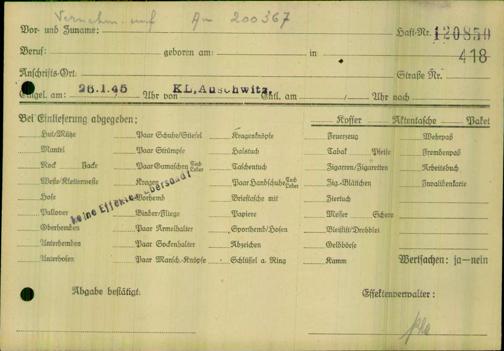 Vor- und Zuname: Am 200367 Haft-Nr. 120850
Beruf: geboren am: in 418
Anschrifts-Ort: Straße Nr.
Eingel. am 26.1.45 Uhr von KL, Auschwitz, Entl. am / Uhr nach
Bei Einlieferung abgegeben: Koffer Aktentasche Paket
Hut/Mütze Paar Schuhe/Stiefel Kragenknöpfe Feuerzeug Wehrpaß
Mantel Paar Strümpfe Halstuch Tabak Pfeife Fremdenpaß
Rock Jacke Paar Gamaschen Tuch Leder Taschentuch Zigarren/Zigaretten Arbeitsbuch
Weste/Kletterweste Kragen Paar Handschuhe Tuch Leder Zig.-Blättchen Invalidenkarte
Hose Vorhemd Brieftasche mit Ziertuch
Pullover Binder/Fliege Papiere Messer Schere
keine Effekten übersandt
Oberhemden Paar Ärmelhalter Sporthemd/Hosen Bleistift/Drehblei
Unterhemden Paar Sockenhalter Abzeichen Geldbörse
Unterhosen Paar Mansch.-Knöpfe Schlüssel a. Ring Kamm Wertsachen: ja—nein
Abgabe bestätigt: Effektenverwalter: